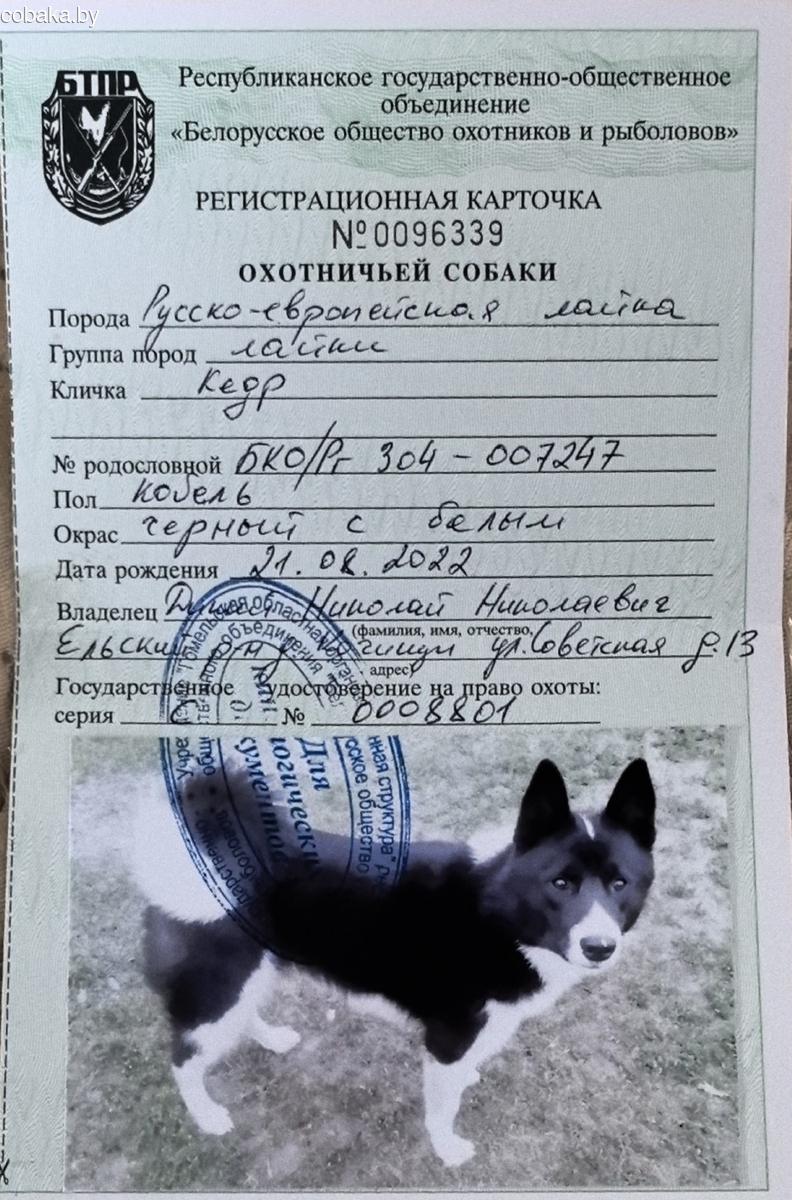 cobaka.by
БТПР
Республиканское государственно-общественное
объединение
«Белорусское общество охотников и рыболовов»
РЕГИСТРАЦИОННАЯ КАРТОЧКА
№0096339
ОХОТНИЧЬЕЙ СОБАКИ
Порода Русско-европейская лайка
Группа пород лайки
Кличка Кедр
№ родословной БКО/Рг 304-007247
Пол кобель
Окрас черный с белым
Дата рождения 21.08.2022
Владелец Николай Николаевич
(фамилия, имя, отчество,
Ельский ул. Советская д. 13
адрес)
Государственное удостоверение на право охоты:
серия № 0008801
Для